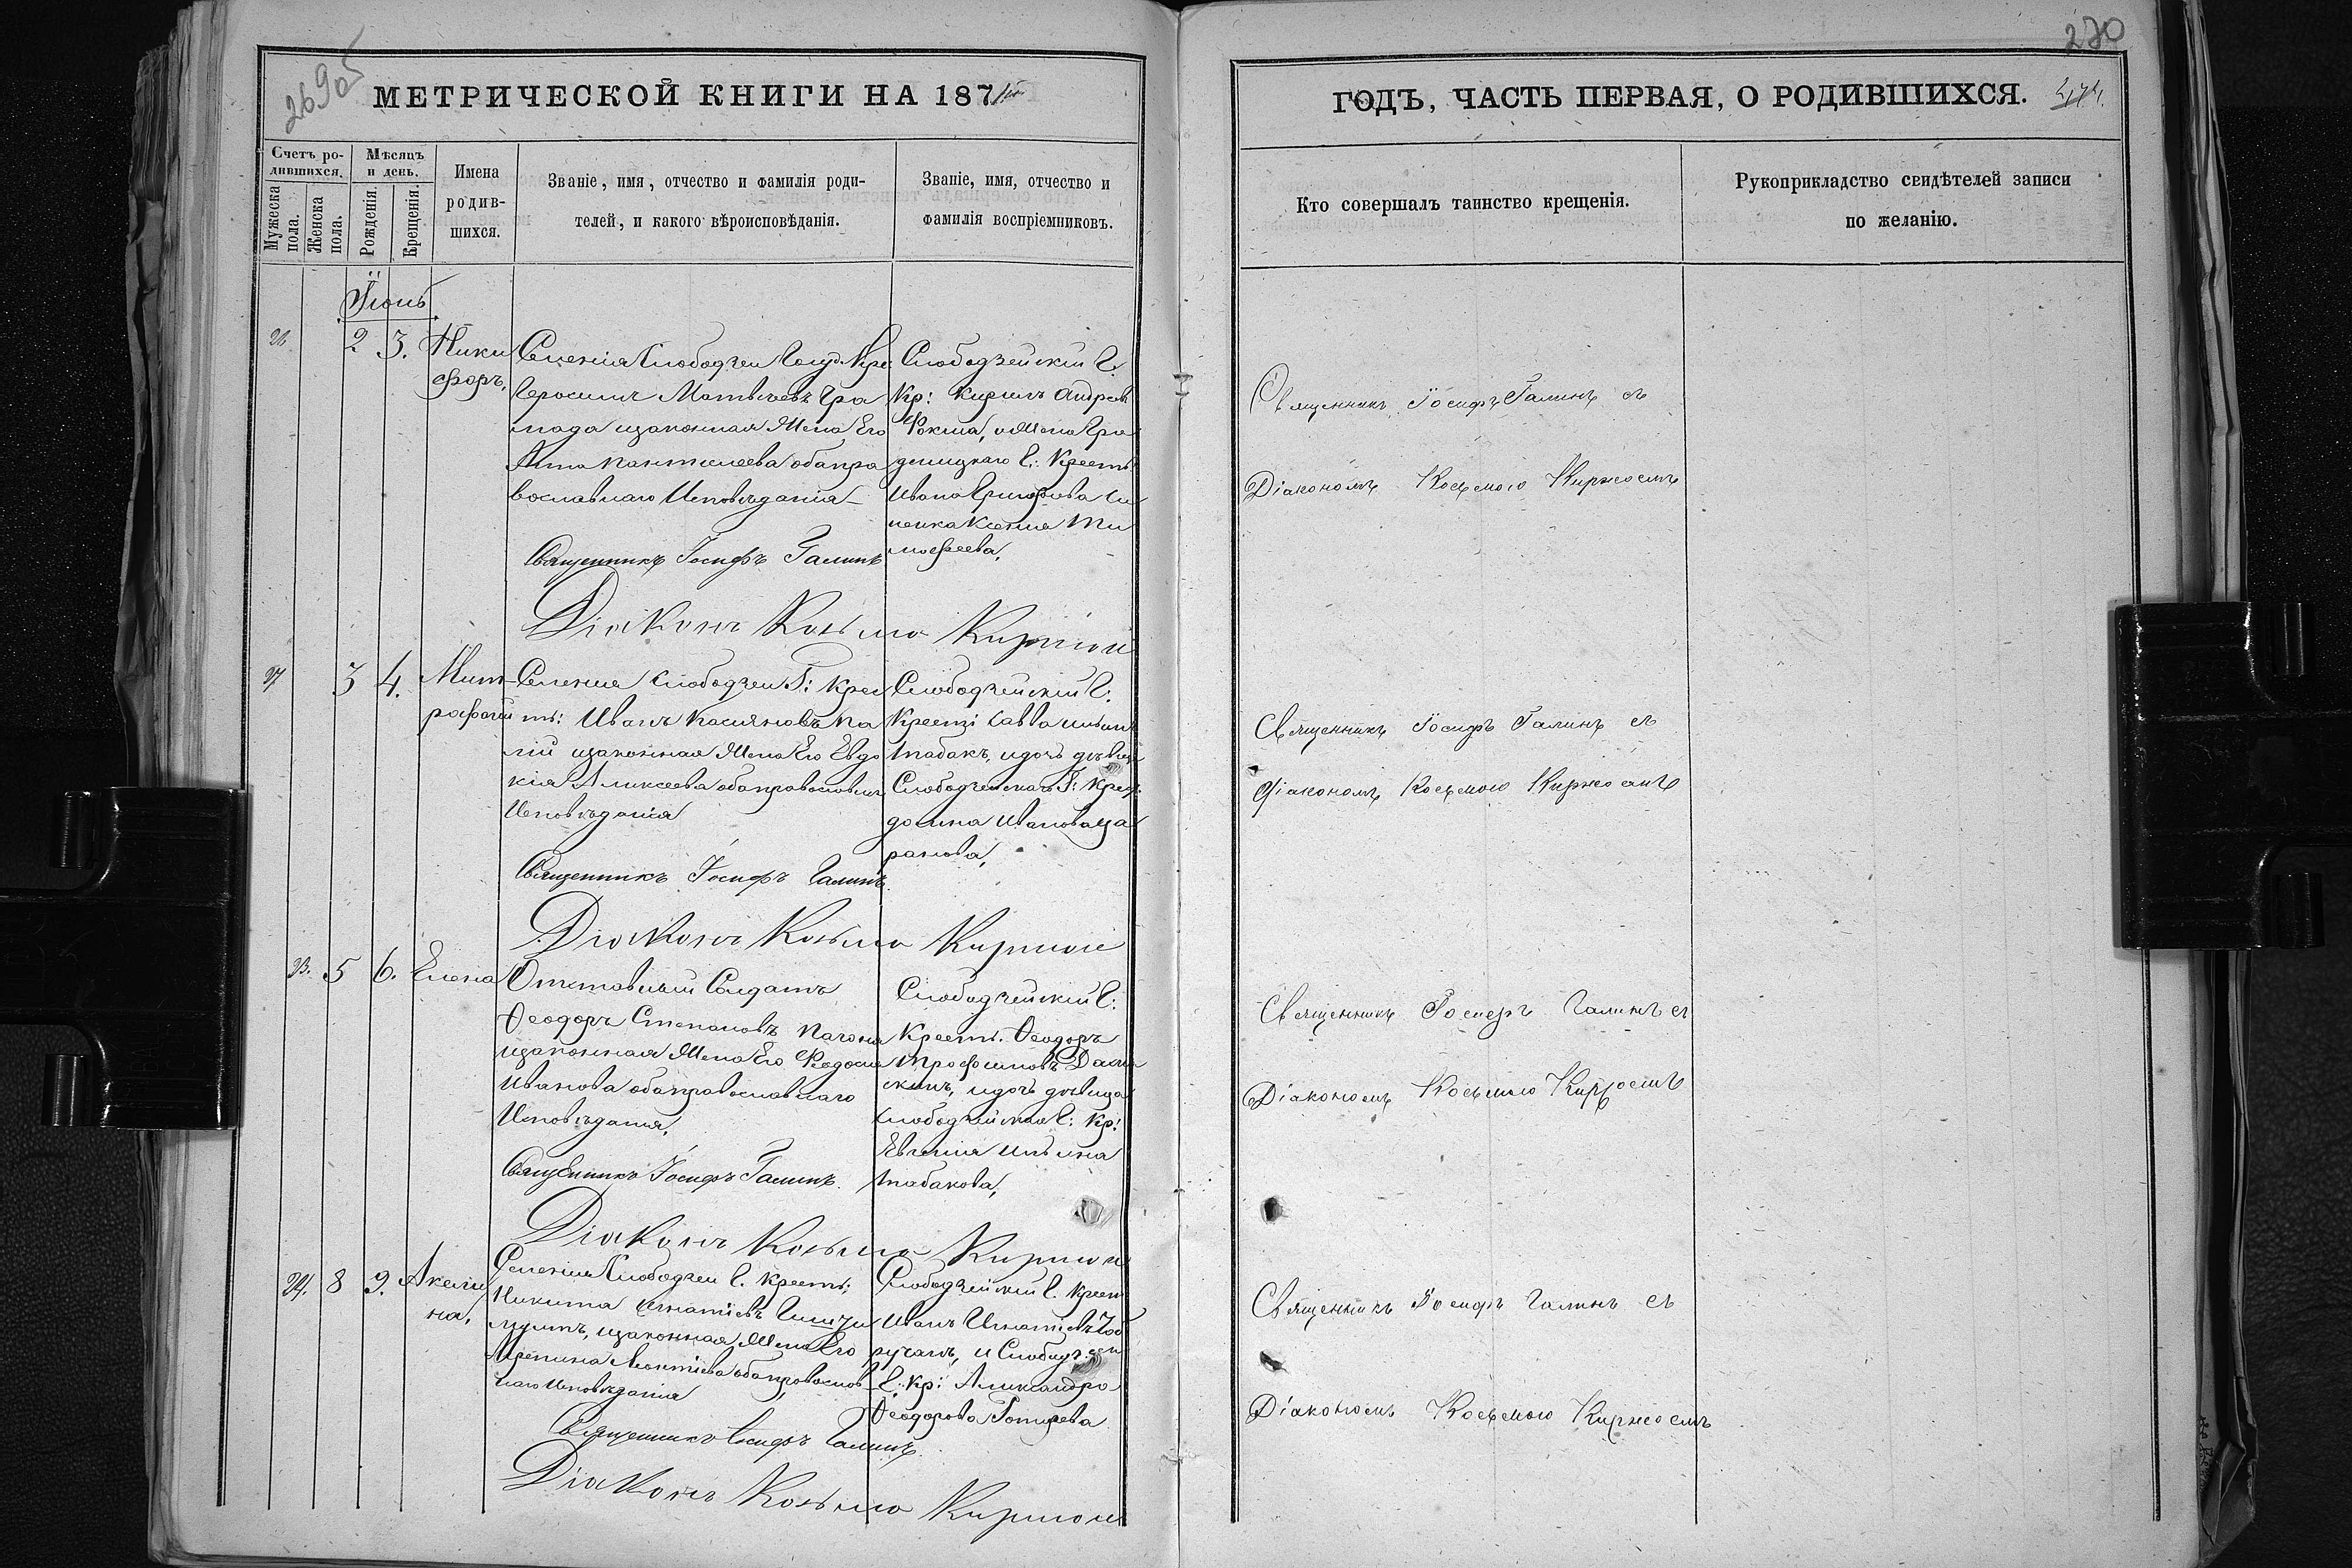 26905
МЕТРИЧЕСКОЙ КНИГИ НА 187
Счетъ ро-
дившихся.
Мѣсяцъ
и день.
Мужеска
пола.
Женска
пола.
Рожденія.
Крещенія.
Имена
родив-
шихся.
Званіе, имя, отчество и фамилія роди-
телей, и какого вѣроисповѣданія.
Званіе, имя, отчество и
фамилія воспріемниковъ.
Іюнь
26 2 3. Ники
форъ,
Селенія Слободзеи
Матвѣевъ Гро
мада изаконная Жена Его
Анна Пантелеева обапра
вославнаго Исповѣданія
Священникъ Іосифъ Галинъ
Діаконъ Козьма Киржои
Слободзейскій Г.
Кр: Кирилъ Андреевъ
Фокша, иЖена Гра
Г: Крестъ
Ивана Григорьева
Ксенія Ти
мофеева,
27 3 4. Мит-
рофаній
Селенія Слободзеи Г: Крес
тъ: Иванъ Касіяновъ Па
лій изаконная Жена Его Евдо
кія Алексеева обаправославн
Исповѣданія
Священникъ Іосифъ Галинъ
Діаконъ Козьма Киржои
Слободзейскій Г.
Савва
Табакъ, идочь дѣвица
Слободзейскаго Г: Крест:
Домна Иванова Ца
ранова,
23. 5 6. Елена
Отставный Солдатъ
Ѳеодоръ Степановъ
изаконная Жена Его Ѳедосія
Иванова обаправославнаго
Исповѣданія,
Священникъ Іосифъ Галинъ
Діаконъ Козьма Киржои
Слободзейскій Г:
Крестъ. Ѳеодоръ
Трофимовъ
идочь дѣвица
Слободзейскаго Г: Кр:
Евгенія Ильина
Табакова,
24. 8 9. Акели
на,
Селенія Слободзеи Г. Крестъ:
Никита Игнатіевъ
изаконная Жена Его
Ирина Леонтіева обаправослав
наго Исповѣданія
Священникъ Іосифъ Галинъ
Діаконъ Козьма Киржои
Слободзейскій Г. Крест
Иванъ Игнатіевъ Чоб
ручанъ, и Слободзеи
Г: Кр: Александра
Ѳеодорова
270
ГОДЪ, ЧАСТЬ ПЕРВАЯ, О РОДИВШИХСЯ.
Кто совершалъ таинство крещенія.
Рукоприкладство свидѣтелей записи
по желанію.
Священникъ Іосифъ Галинъ съ
Діакономъ Косьмою Киржоемъ
Священникъ Іосифъ Галинъ съ
Діакономъ Косьмою Киржоемъ
Священникъ Іосифъ Галинъ съ
Діакономъ Косьмою Киржоемъ
Священникъ Іосифъ Галинъ съ
Діакономъ Косьмою Киржоемъ